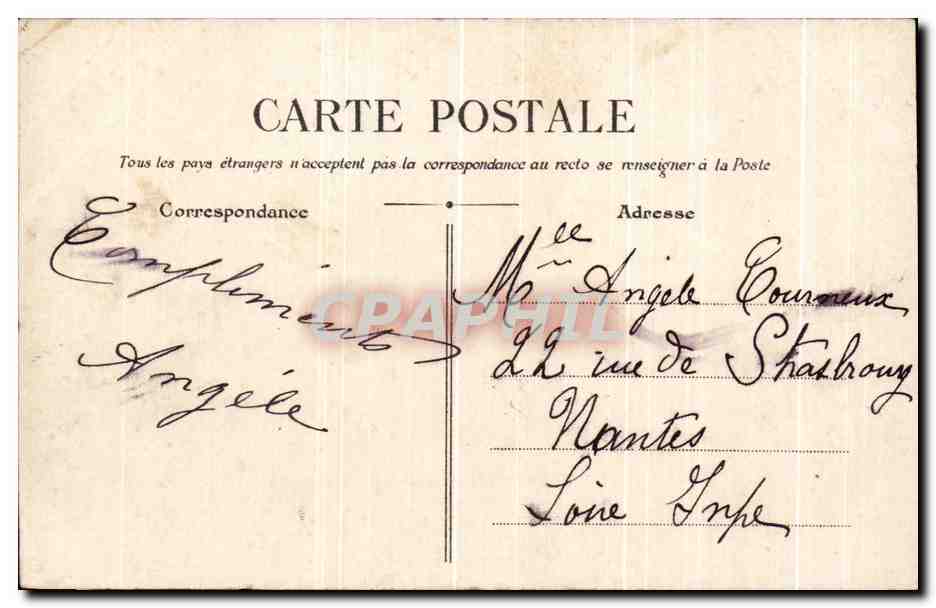 CARTE POSTALE
Tous les pays étrangers n'acceptent pas la correspondance au recto se renseigner à la Poste
Correspondance
Compliments
Angéle
Adresse
Mlle Angele Tourneux
22 rue de Strasbourg
Nantes
Loire Infre
CPAPHIL